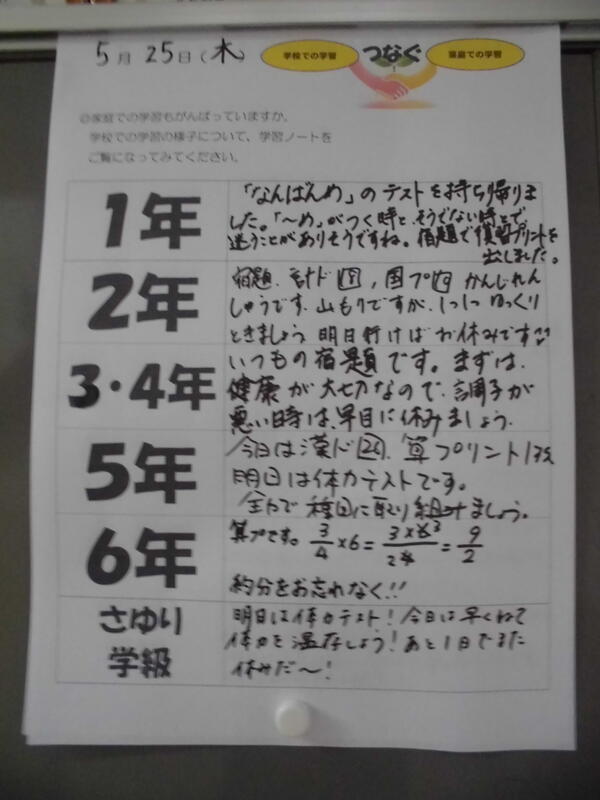 5月25日(木)
学校での学習
つなぐ
家庭での学習
◎家庭での学習もがんばっていますか。
学校での学習の様子について、学習ノートを
ご覧になってみてください。
1年
「なんばんめ」のテストを持ち帰りま
した。「〜め」がつく時と、そうでない時とで
迷うことがありそうですね。宿題で復習プリントを
出しました。
2年
宿題、計ド 国プ かんじれん
しゅうです。山もりですが、1つ1つゆっくり
ときましょう 明日行けばお休みです
3・4年
いつもの宿題です。まずは、
健康が大切なので、調子が
悪い時は、早目に休みましょう。
5年
今日は漢ド 算プリント1枚
明日は体力テストです。
全力で種目に取り組みましょう。
6年
算プです。 3/4×6=3×6³/2 4=9/2
約分をお忘れなく!!
さゆり
学級
明日は体力テスト!今日は早くねて
体力を温存しよう!あと1日でまた
休みだ〜!